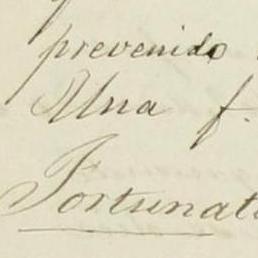 prevenido
Una f.
Fortunat